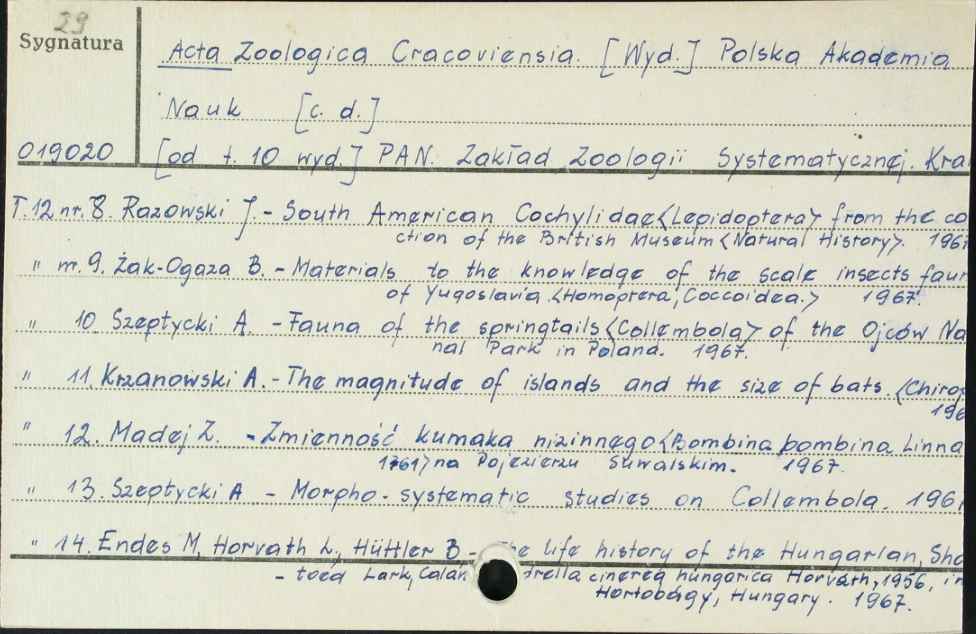 29
Sygnatura
Acta Zoologica Cracoviensia. [Wyd.] Polska Akademia
Nauk [c. d.]
019020 [od t. 10 wyd.] PAN. Zakład Zoologii Systematycznej. Kra
T.12 nr. 8. Razowski J. - South American Cochylidae <Lepidoptera> from the co
ction of the British Museum <Natural History>. 1967
" nr. 9. Żak-Ogaza B. - Materials to the knowledge of the scale insects faun
of Yugoslavia. <Homoptera, Coccoidea.> 1967.
" 10 Szeptycki A. - Fauna of the springtails <Collembola> of the Ojców Na
nal Park in Poland. 1967.
" 11. Krzanowski A. - The magnitude of islands and the size of bats. <Chirop
196
" 12. Madej Z. - Zmienność kumaka nizinnego <Bombina bombina Linna
1761> na Pojezierzu Suwalskim. 1967.
" 13. Szeptycki A - Morpho-systematic studies on Collembola. 196
" 14. Endes M, Horvath L., Hüttler B - e life history of the Hungarian, Sho
- toed Lark, Calan drella cinerea hungarica Horváth, 1956, in
Hortobágy, Hungary. 1967.